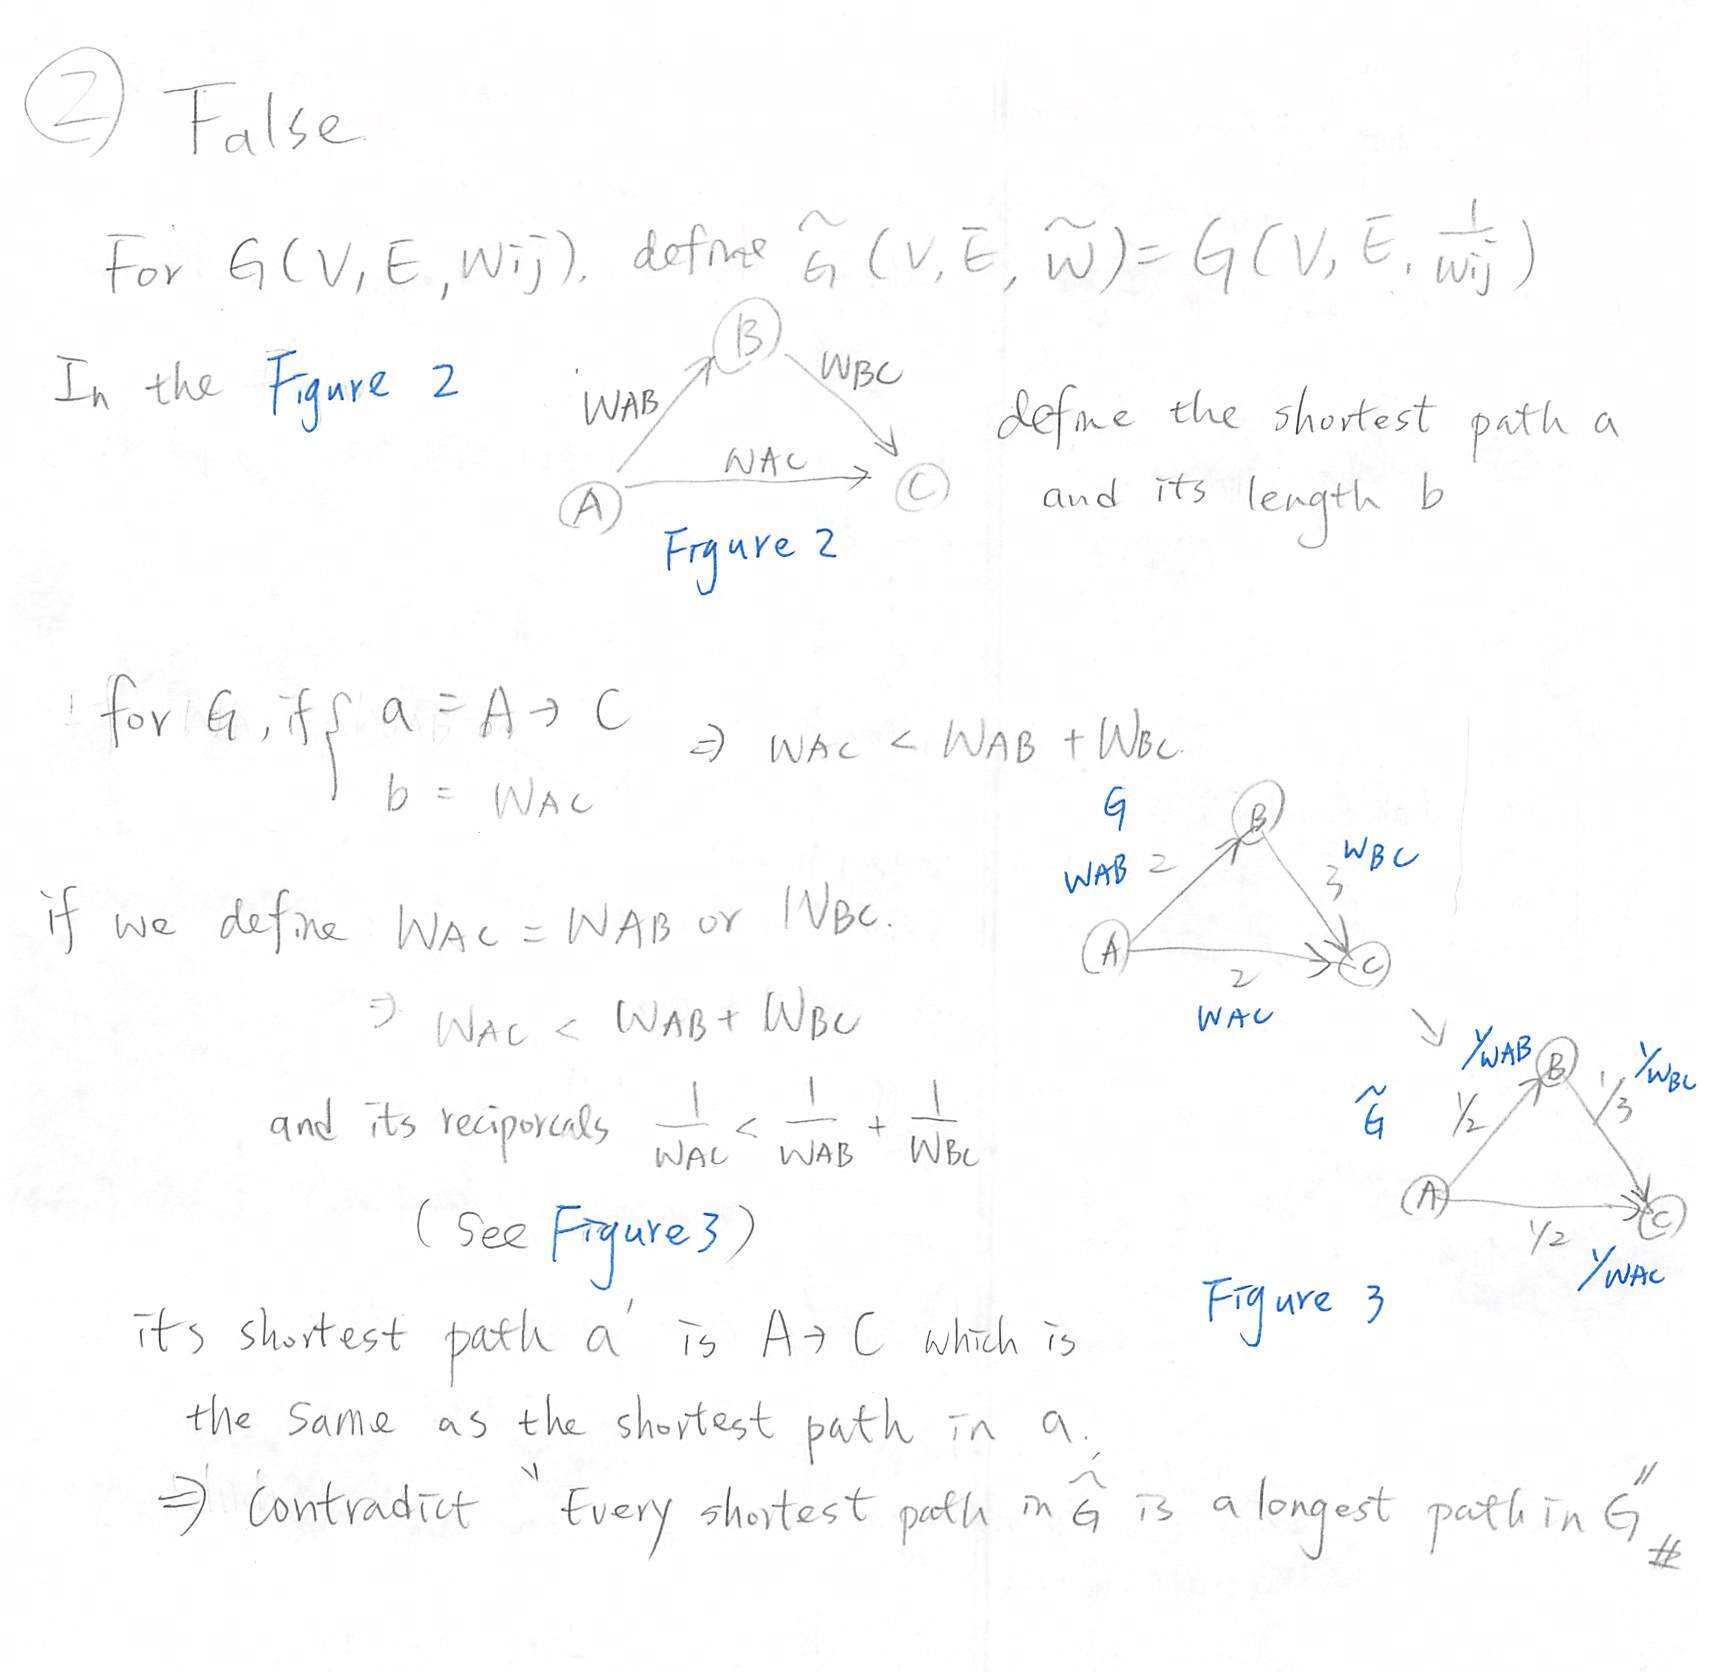 ② False
For G(V, E, Wij). define G̃(V, E, W̃) = G(V, E, 1/Wij)
In the Figure 2
B
WAB
WBC
WAC
A
C
Figure 2
define the shortest path a
and its length b
for G, if { a = A → C
b = WAC
⇒ WAC < WAB + WBC.
if we define WAC = WAB or WBC.
⇒ WAC < WAB + WBC
and its reciporcals 1/WAC < 1/WAB + 1/WBC
(See Figure 3)
G
B
WAB 2
3 WBC
A
C
2
WAC
↘
G̃
1/WAB
B
1/WBC
1/2
1/3
A
C
1/2
1/WAC
Figure 3
its shortest path a' is A → C which is
the same as the shortest path in a.
⇒ Contradict "Every shortest path in G̃ is a longest path in G" #